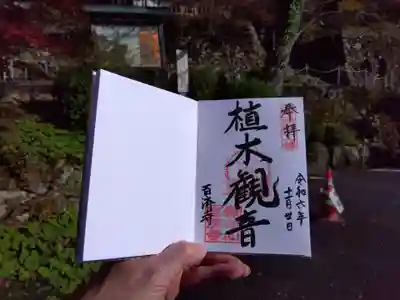 奉拝
令和六年
十一月廿日
植木観音
百済寺